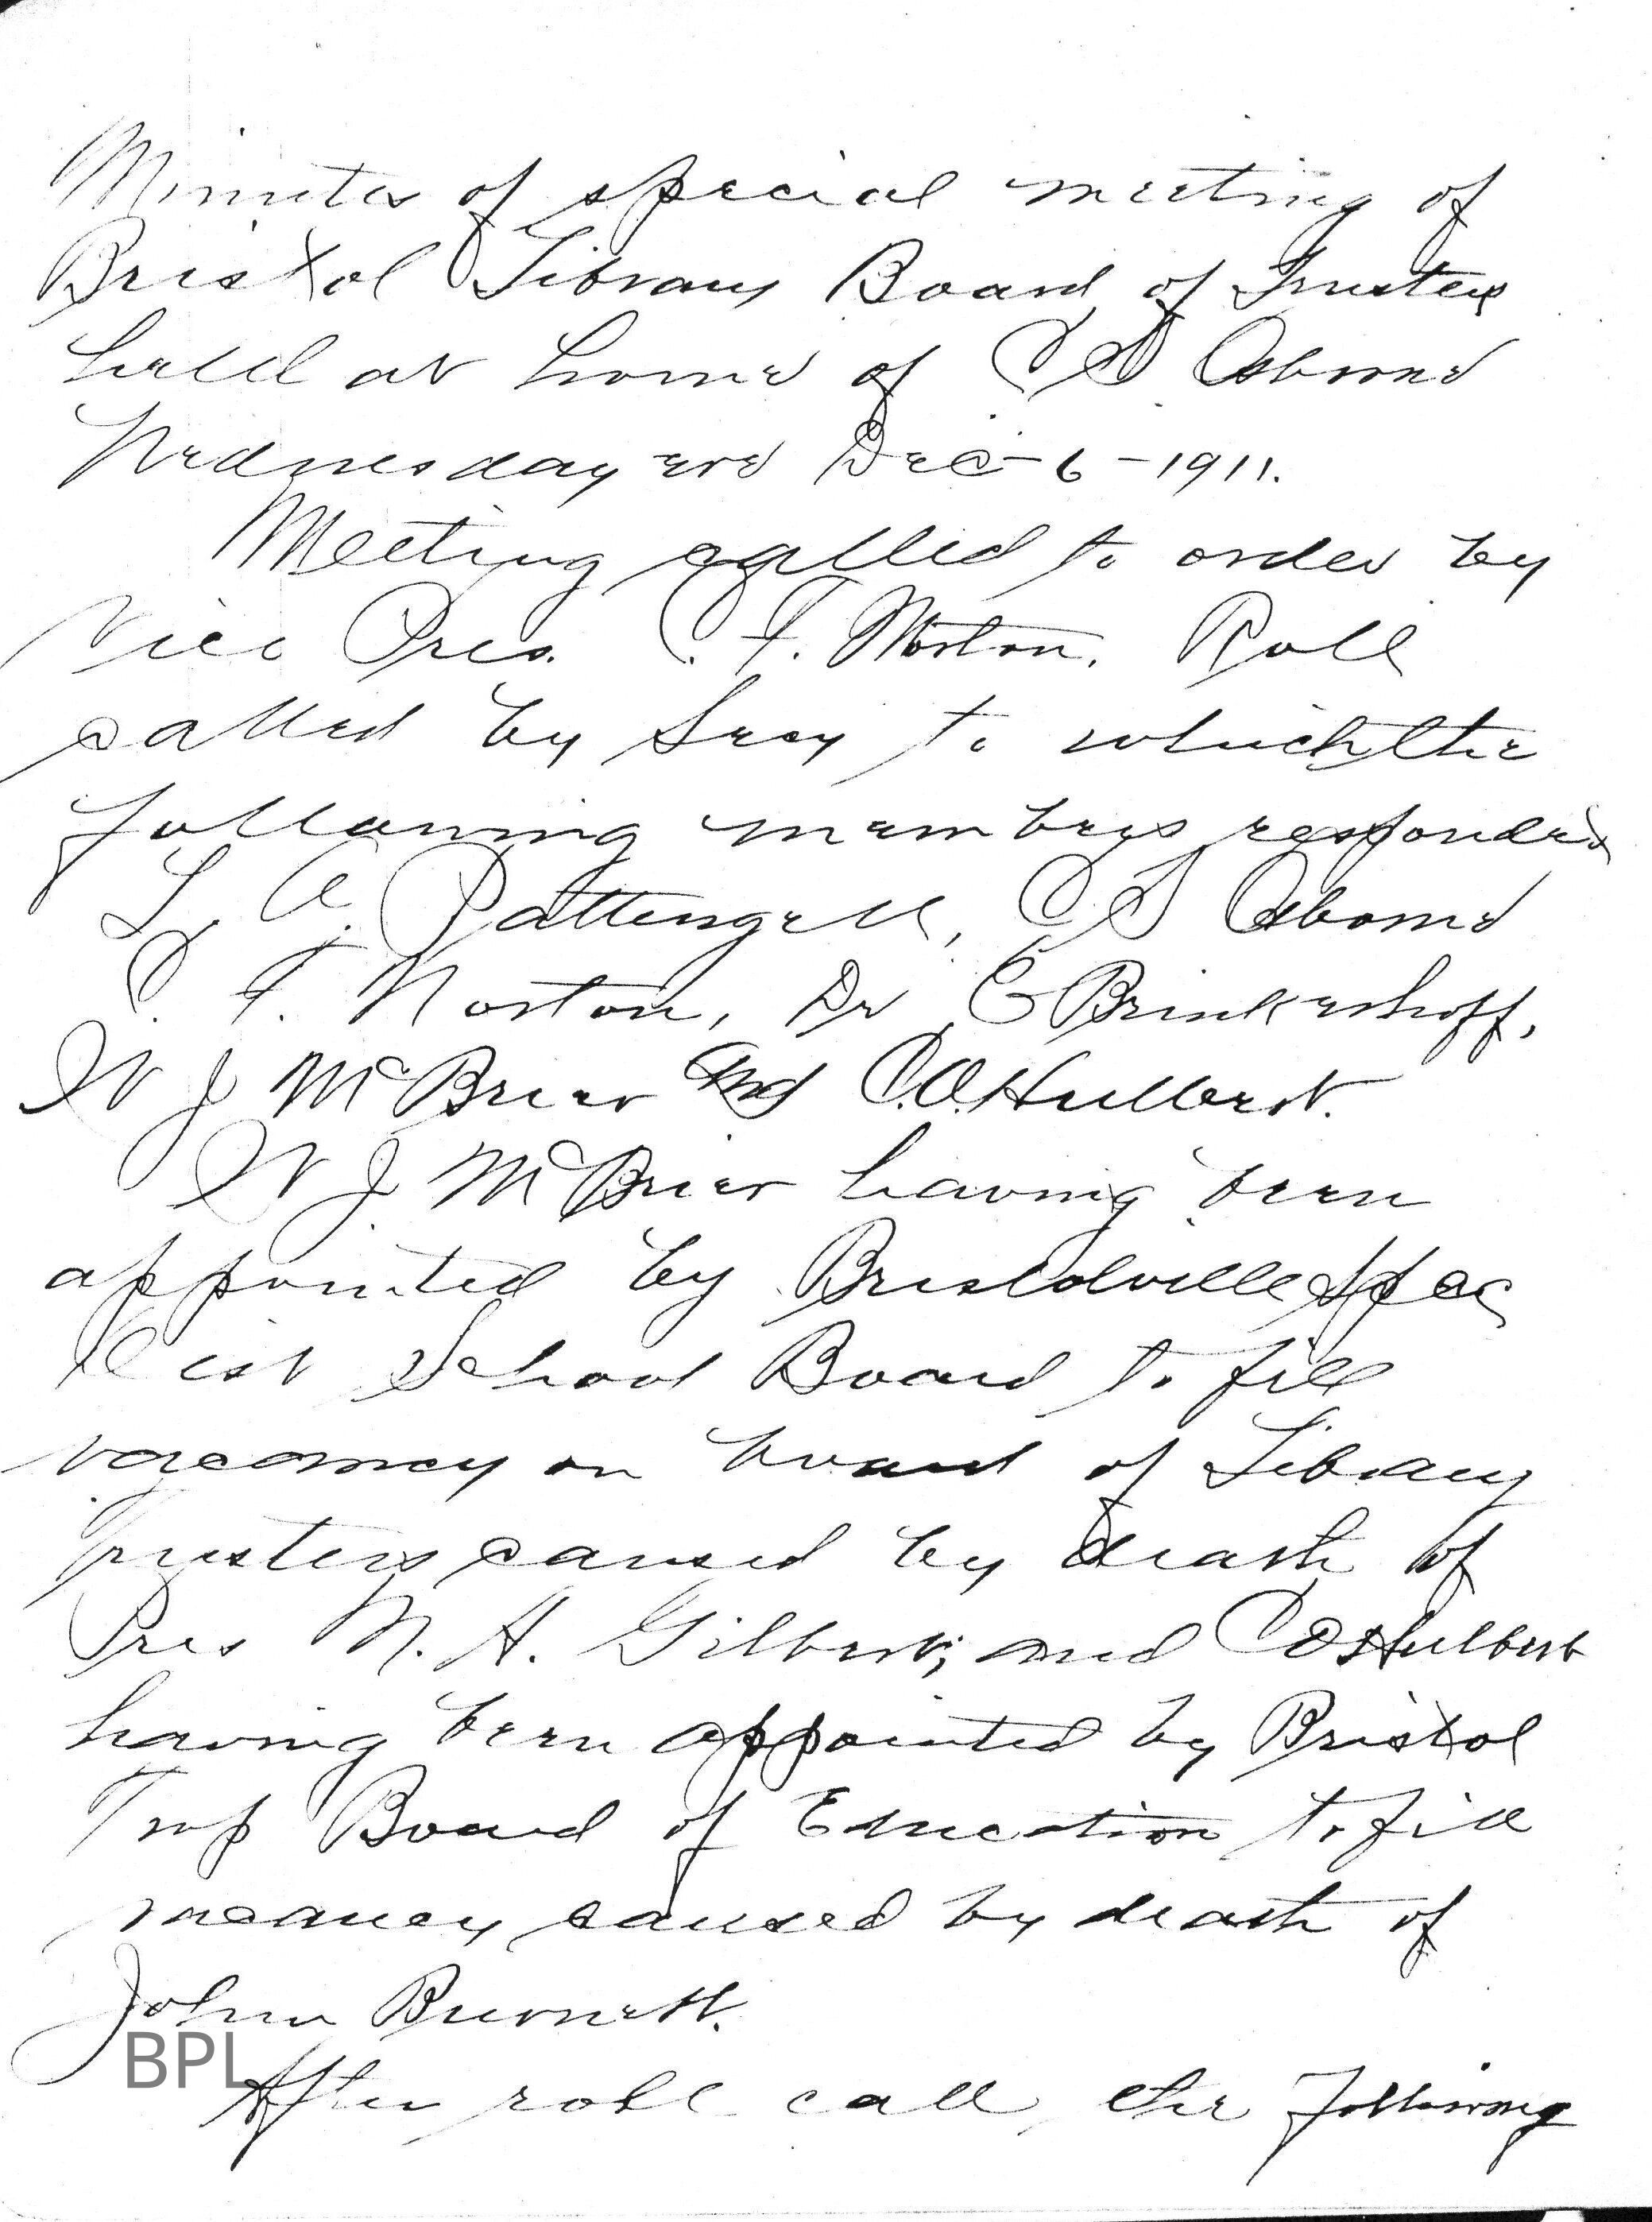 Minutes of special meeting of
Bristol Library Board of Trustees
held at home of C S Osborne
Wednesday eve Dec-6-1911.
Meeting called to order by
Vice Pres. C. F. Norton. Roll
called by Secy to which the
following members responded
L. A. Pattengell, C S Osborne
C. F. Norton, Dr C Brinkerhoff,
W J McBrier and C.O. Hulbert.
W J McBrier having been
appointed by Bristolville Spec
Dist School Board to fill
vacancy on board of Library
Trustees caused by death of
Pres N. H. Gilbert; and C O Hulbert
having been appointed by Bristol
Twp Board of Education to fill
vacancy caused by death of
John Burnett.
BPL
After roll call the following